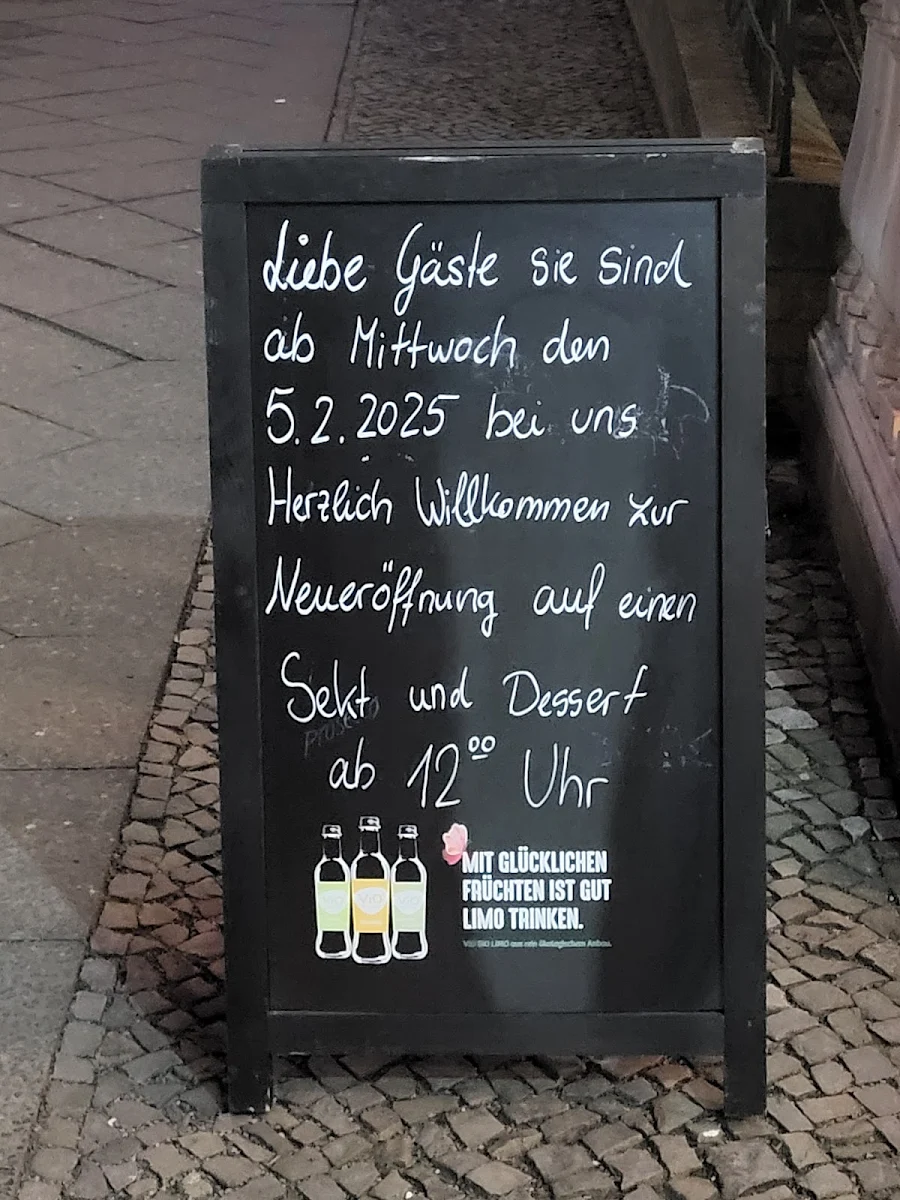 Liebe Gäste sie sind
ab Mittwoch den
5.2.2025 bei uns
Herzlich Willkommen zur
Neueröffnung auf einen
Sekt und Dessert
prosecco
ab 12⁰⁰ Uhr
ViO ViO ViO
MIT GLÜCKLICHEN
FRÜCHTEN IST GUT
LIMO TRINKEN.
ViO BiO LiMO aus rein ökologischem Anbau.